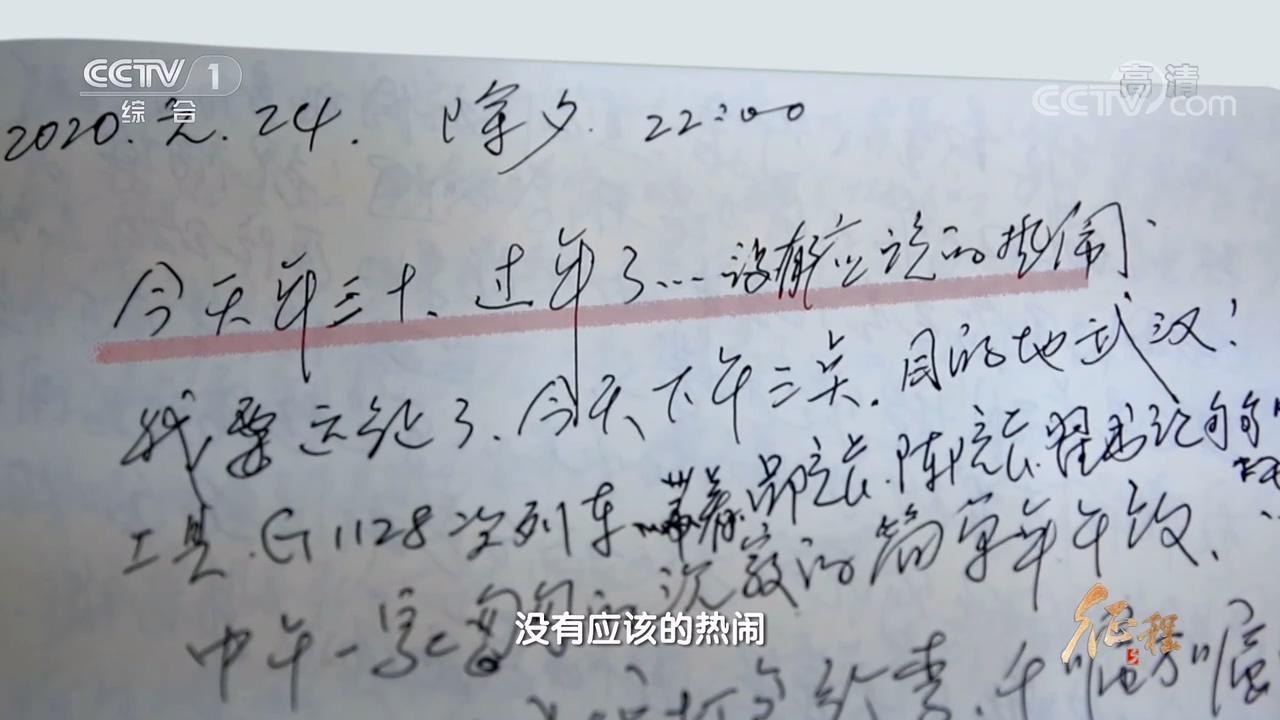 CCTV 1
综合
高清
CCTV.com
2020.元.24. 除夕. 22:00
今天年三十、过年了...没有应该的热闹.
我要远征了、今天下午三点.目的地武汉!
工具.G1128次列车.带着邵院长.陈院长.翟书记
中午一家匆匆的沉寂的简单年午饭、
没有应该的热闹
征程